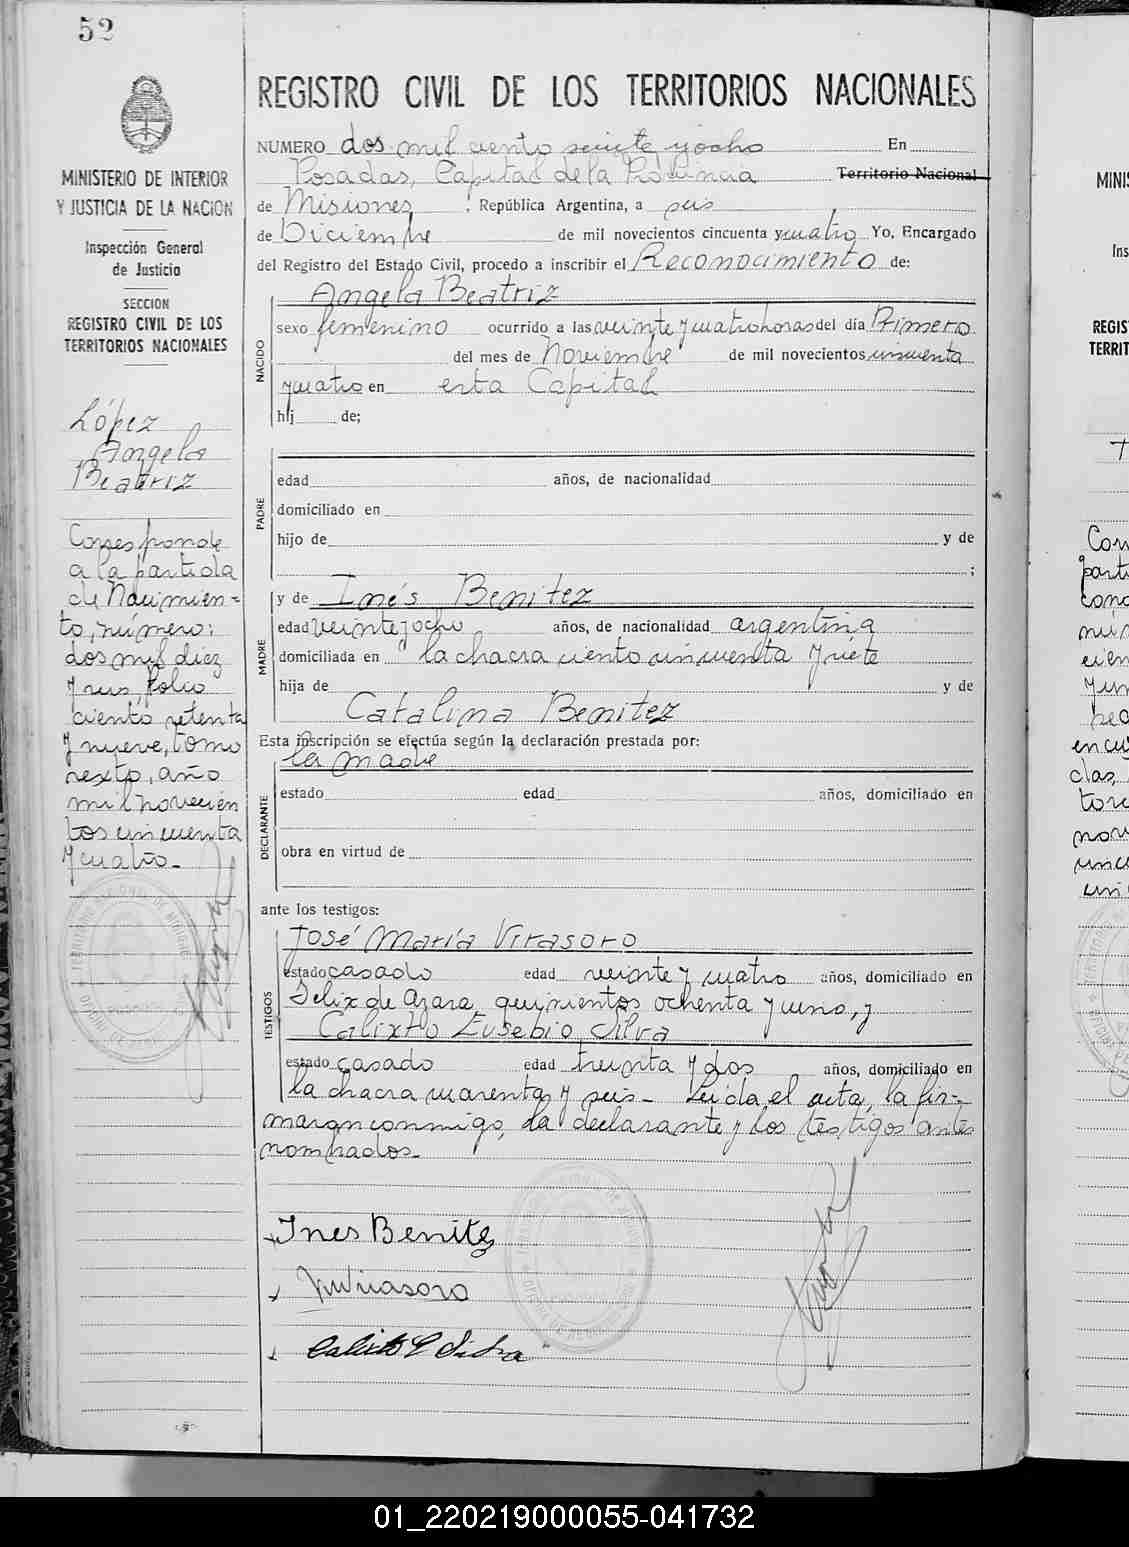 52
MINISTERIO DE INTERIOR
Y JUSTICIA DE LA NACION
Inspección General
de Justicia
SECCION
REGISTRO CIVIL DE LOS
TERRITORIOS NACIONALES
López
Angela
Beatriz
Corresponde
a la partida
de Nacimien=
to, número:
dos mil diez
y seis, folio
ciento setenta
y nueve, tomo
sexto, año
mil novecien
tos cincuenta
y cuatro_
REGISTRO CIVIL DE LOS TERRITORIOS NACIONALES
NUMERO dos mil ciento veinte y ocho En
Posadas, Capital de la Provincia Territorio Nacional
de Misiones, República Argentina, a seis
de Diciembre de mil novecientos cincuenta y cuatro Yo, Encargado
del Registro del Estado Civil, procedo a inscribir el Reconocimiento de:
Angela Beatriz
NACIDO
sexo femenino ocurrido a las veinte y cuatro horas del día Primero
del mes de Noviembre de mil novecientos cincuenta
y cuatro en esta Capital
hij de;
PADRE
edad años, de nacionalidad
domiciliado en
hijo de y de
;
MADRE
y de Inés Benitez
edad veinte y ocho años, de nacionalidad argentina
domiciliada en la chacra ciento cincuenta y siete
hija de y de
Catalina Benitez
Esta inscripción se efectúa según la declaración prestada por:
la madre
DECLARANTE
estado edad años, domiciliado en
obra en virtud de
ante los testigos:
José María Virasoro
TESTIGOS
estado casado edad veinte y cuatro años, domiciliado en
Felix de Azara, quinientos ochenta y uno, y
Calixto Eusebio Silva
estado casado edad treinta y dos años, domiciliado en
la chacra cuarenta y seis_ Leida el acta, la fir=
maron conmigo, la declarante y los testigos antes
nombrados_
Ines Benitez
JMVirasoro
Calixto E Silva
MINIS
Ins
REGIS
TERRIT
01_220219000055-041732